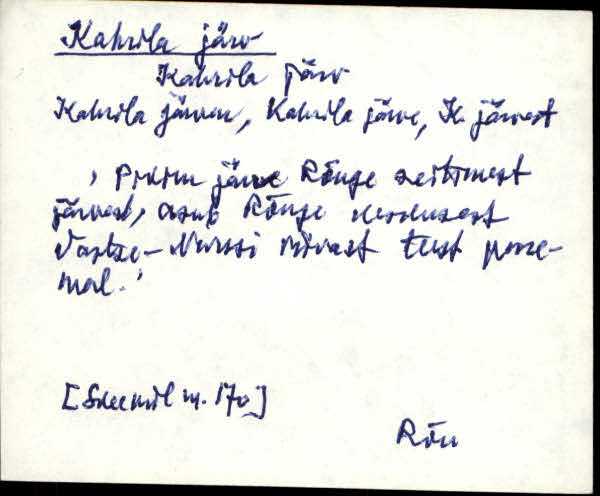 Kahrila järv
Kahrila järv
Kahrila järven, Kahrila järve, K. järvest
, Pikim järve Rõuge seitsmest
järvest, asub Rõuge keskusest
Vastse-Nursi
mal.'
[Skeemil nr. 170]
Rõu